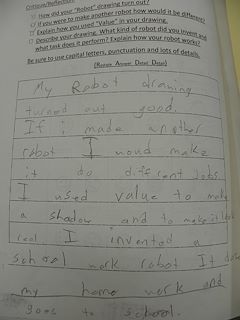 Critique/Reflection
How did your "Robot" drawing turn out?
If you were to make another robot how would it be different?
Explain how you used "Value" in your drawing.
Describe your drawing. What kind of robot did you invent and
what task does it perform? Explain how your robot works?
Be sure to use capital letters, punctuation and lots of details.
(Restate Answer Detail Detail)
My Robot drawing
turned out good.
If i made another
robot I woud make
it do different Jobs
I used value to make
a shadow and to make it look
real I invented a
school work robot It does
my home work and
goes to school.